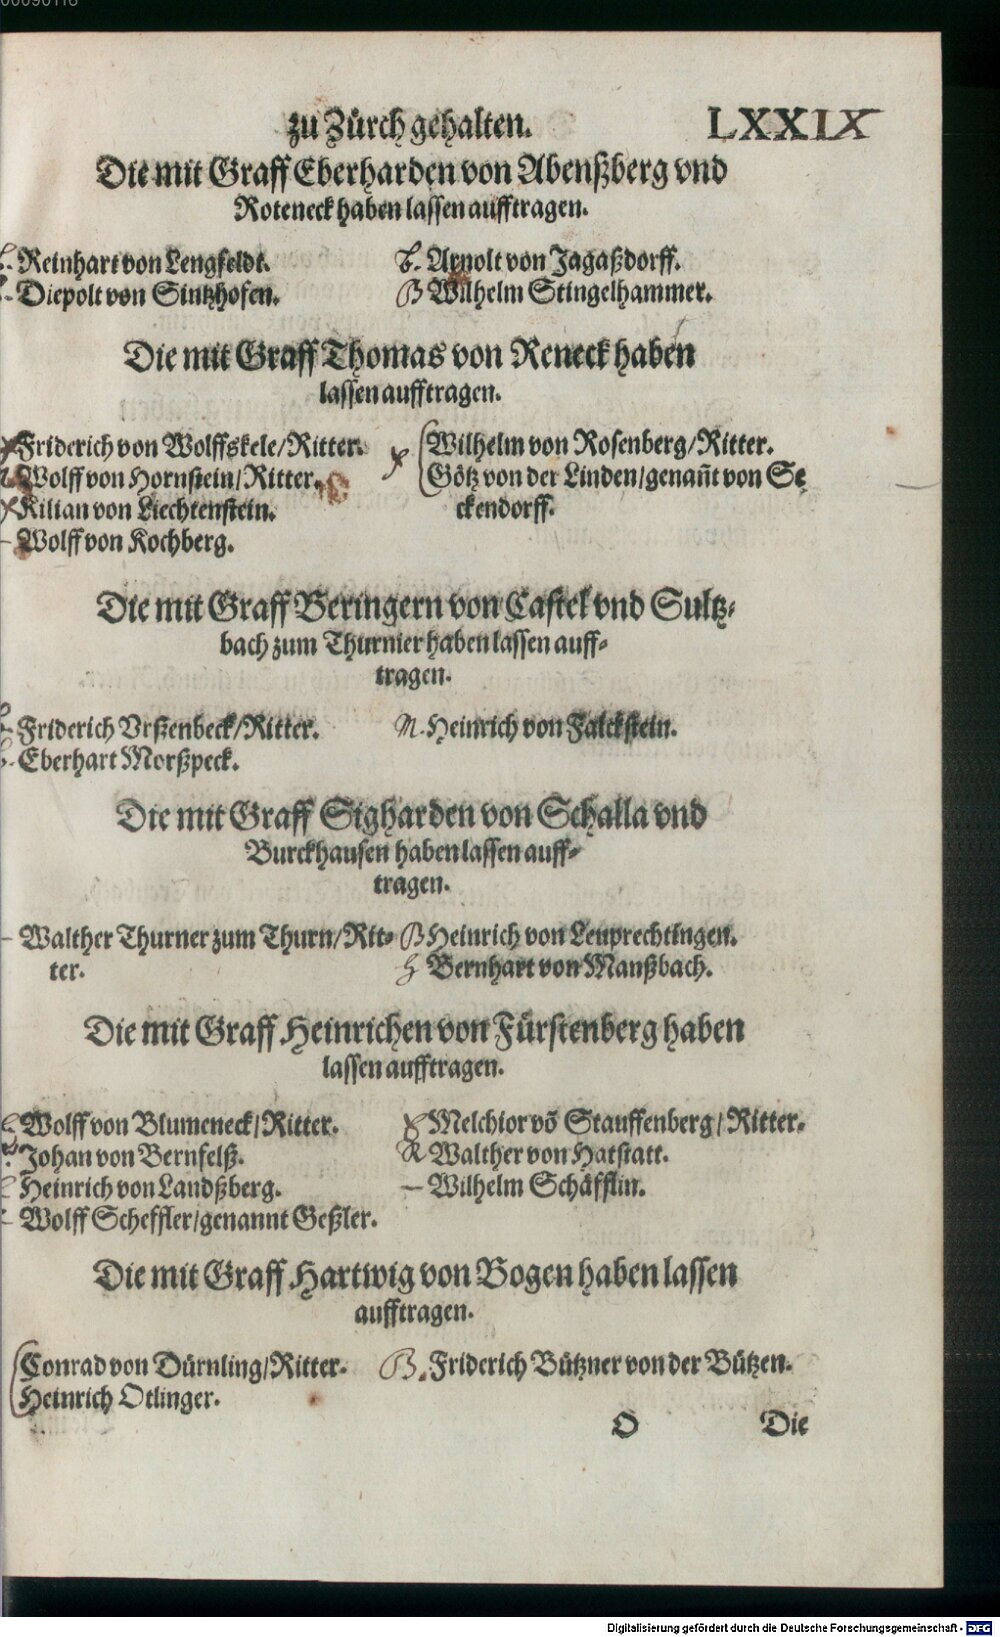 zu Zürch gehalten. LXXIX
Die mit Graff Eberharden von Abenßberg vnd
Roteneck haben lassen aufftragen.
Reinhart von Lengfeldt.
Diepolt von Sintzhofen.
B. Arnolt von Jagaßdorff.
B Wilhelm Stingelhammer.
Die mit Graff Thomas von Reneck haben
lassen aufftragen.
Friderich von Wolffskele/Ritter.
Wolff von Hornstein/Ritter.
Kilian von Liechtenstein.
– Wolff von Kochberg.
Wilhelm von Rosenberg/Ritter.
Götz von der Linden/genañt von Se
ckendorff.
Die mit Graff Beringern von Castel vnd Sultz-
bach zum Thurnier haben lassen auff-
tragen.
Friderich Vrßenbeck/Ritter.
Eberhart Morßpeck.
M. Heinrich von Falckstein.
Die mit Graff Sigharden von Schalla vnd
Burckhausen haben lassen auff-
tragen.
– Walther Thurner zum Thurn/Rit-
ter.
B Heinrich von Leuprechtingen.
h Bernhart von Manßbach.
Die mit Graff Heinrichen von Fürstenberg haben
lassen aufftragen.
Wolff von Blumeneck/Ritter.
Johan von Bernfelß.
Heinrich von Landßberg.
Wolff Scheffler/genannt Geßler.
Melchior võ Stauffenberg/Ritter.
R Walther von Hatstatt.
– Wilhelm Schäfflin.
Die mit Graff Hartwig von Bogen haben lassen
aufftragen.
Conrad von Dürnling/Ritter.
Heinrich Otlinger.
B. Friderich Bützner von der Bützen.
O Die
Digitalisierung gefördert durch die Deutsche Forschungsgemeinschaft - DFG